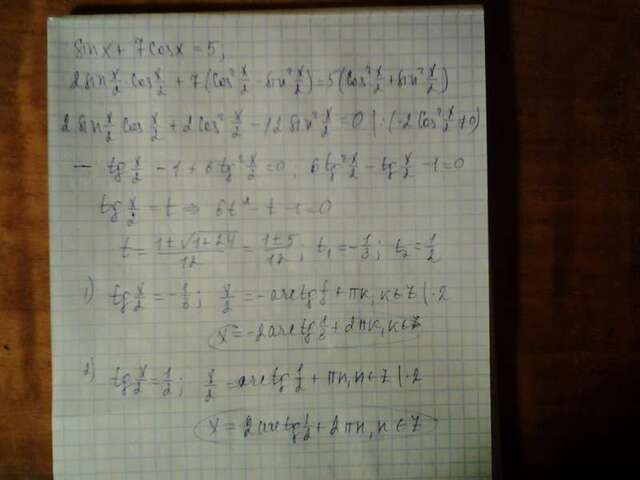 sin x + 7cos x = 5;
2sin x/2 cos x/2 + 7(cos² x/2 - sin² x/2) = 5(cos² x/2 + sin² x/2)
2sin x/2 cos x/2 + 2cos² x/2 - 12sin² x/2 = 0 | : (-2cos² x/2 ≠ 0)
- tg x/2 - 1 + 6tg² x/2 = 0; 6tg² x/2 - tg x/2 - 1 = 0
tg x/2 = t ⇒ 6t² - t - 1 = 0
t = (1±√(1+24))/12 = (1±5)/12; t₁ = -1/3; t₂ = 1/2
1) tg x/2 = -1/3; x/2 = -arctg 1/3 + πk, k∈Z | ·2
x = -2arctg 1/3 + 2πk, k∈Z
2) tg x/2 = 1/2; x/2 = arctg 1/2 + πn, n∈Z | ·2
x = 2arctg 1/2 + 2πn, n∈Z